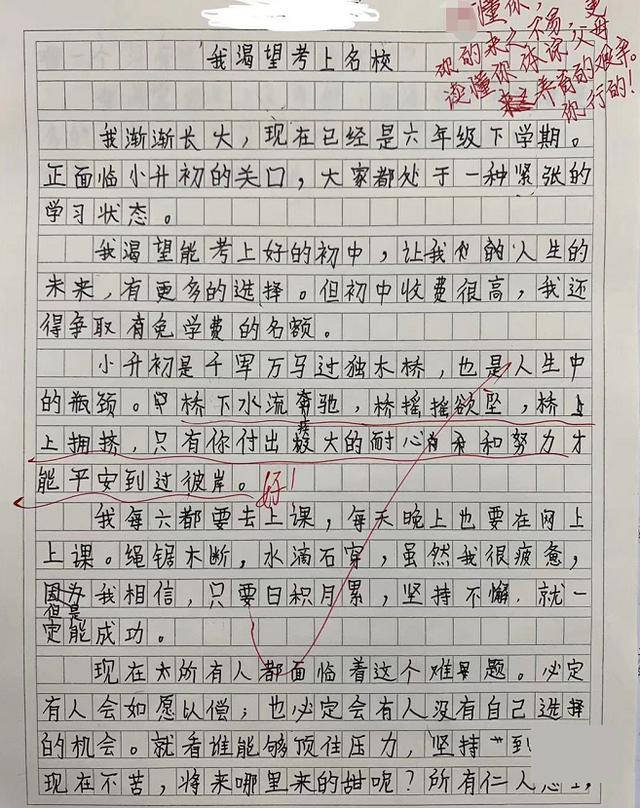 懂你，更
你的来之不易，
读懂你体谅父母
养育的艰辛。
你行的！
我渴望考上名校
我渐渐长大，现在已经是六年级下学期。
正面临小升初的关口，大家都处于一种紧张的
学习状态。
我渴望能考上好的初中，让我的人生的
未来，有更多的选择。但初中收费很高，我还
得争取有免学费的名额。
小升初是千军万马过独木桥，也是人生中
的瓶颈。桥下水流奔驰，桥摇摇欲坠，桥上
上拥挤，只有你付出极大的耐心和努力才
能平安到过彼岸。好！
我每六都要去上课，每天晚上也要在网上
上课。绳锯木断，水滴石穿，虽然我很疲惫，
但是我相信，只要日积月累，坚持不懈，就一
定能成功。
现在所有人都面临着这个难题。必定
有人会如愿以偿；也必定会有人没有自己选择
的机会。就看谁能够顶住压力，坚持到
现在不苦，将来哪里来的甜呢？所有仁人志士，